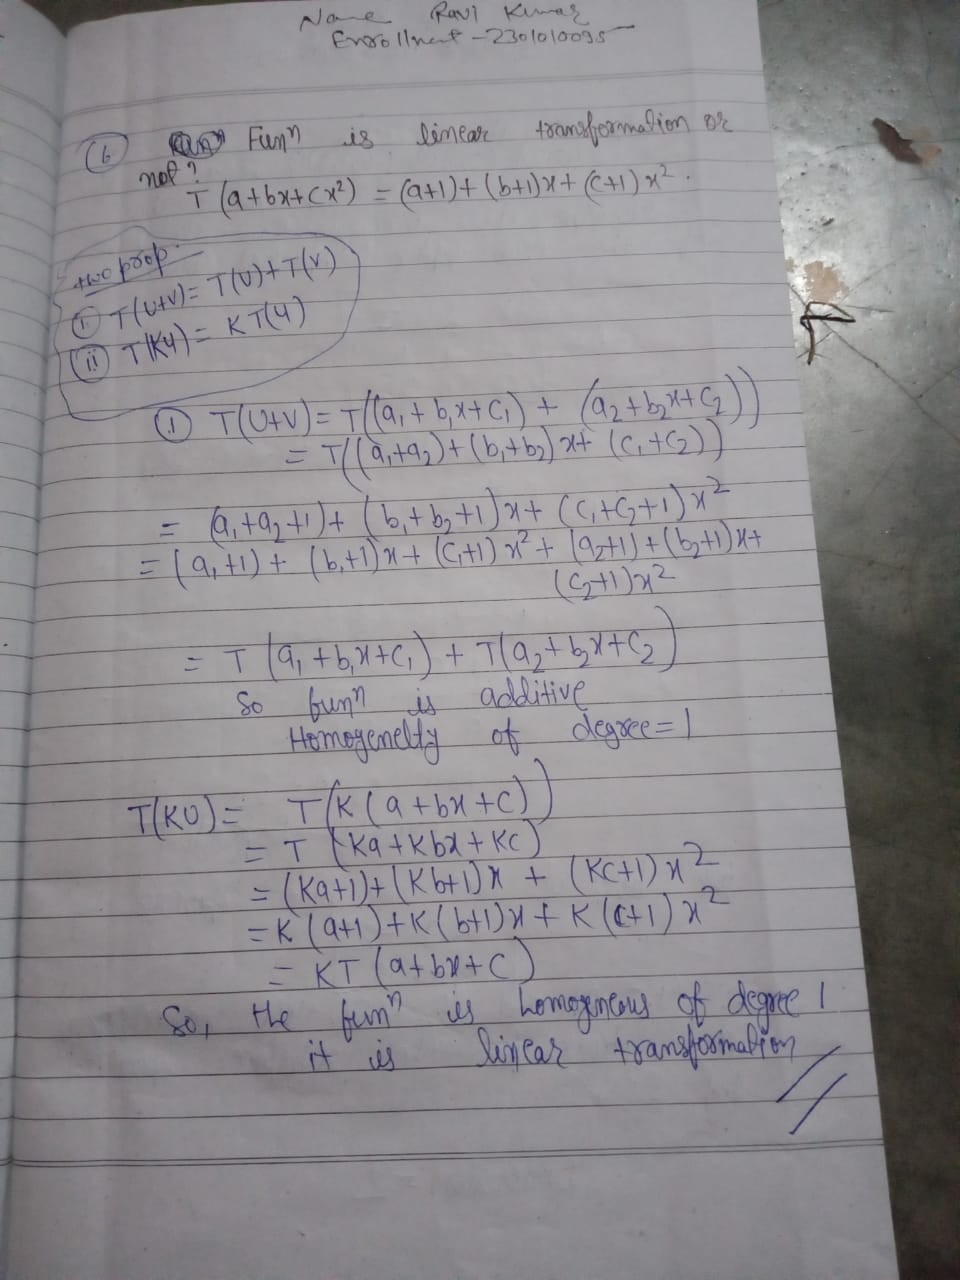 Name Ravi Kumar
Enrollment - 2301010095
(6) Funⁿ is linear transformation or
not?
T (a+bx+cx²) = (a+1)+(b+1)x+(c+1)x².
two prop.
(i) T(U+V) = T(U)+T(V)
(ii) T(KU) = KT(U)
(i) T(U+V) = T((a₁+b₁x+c₁) + (a₂+b₂x+c₂))
= T((a₁+a₂)+(b₁+b₂)x+(c₁+c₂))
= (a₁+a₂+1)+(b₁+b₂+1)x+(c₁+c₂+1)x²
= (a₁+1)+(b₁+1)x+(c₁+1)x²+(a₂+1)+(b₂+1)x+
(c₂+1)x²
= T(a₁+b₁x+c₁)+T(a₂+b₂x+c₂)
So funⁿ is additive
Homogenelty of degree=1
T(KU) = T(K(a+bx+c))
= T(Ka+Kbx+Kc)
= (Ka+1)+(Kb+1)x + (Kc+1)x²
= K(a+1)+K(b+1)x+K(c+1)x²
= KT(a+bx+c)
So, the funⁿ is homogeneous of degree 1
it is linear transformation